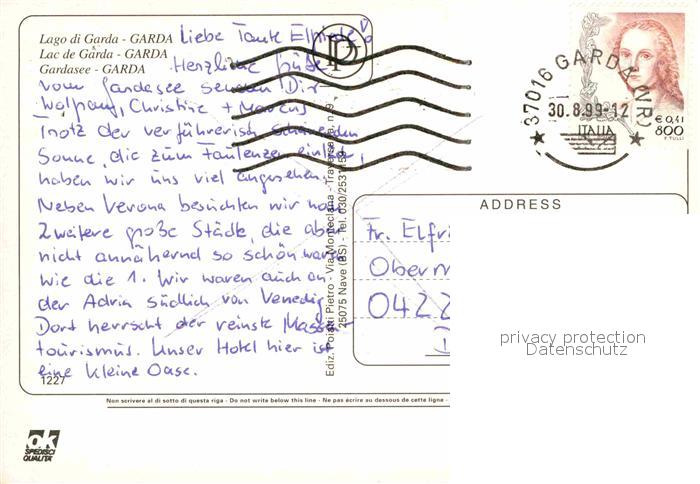 Lago di Garda - GARDA
Lac de Garda - GARDA
Gardasee - GARDA
Liebe Tante Elfriede!
Herzliche Grüße
vom Gardasee senden Dir
Wolfgang, Christine + Marcus
Trotz der verführerisch scheinenden
Sonne, die zum Faulenzen einlädt,
haben wir uns viel angesehen.
Neben Verona besuchten wir noch
2 weitere große Städte, die aber
nicht annähernd so schön waren
wie die 1. Wir waren auch an
der Adria südlich von Venedig.
Dort herrscht der reinste Massen-
tourismus. Unser Hotel hier ist
eine kleine Oase.
1227
Ediz. Poiatti Pietro - Via Monteclana - Traversa
25075 Nave (BS) - Tel. 030/2531159
37016 GARDA (VR)
30.8.99-12
ITALIA
€ 0,41
800
F. TULLI
ADDRESS
Fr. Elfri
Oberm
0422
D
privacy protection
Datenschutz
Non scrivere al di sotto di questa riga - Do not write below this line - Ne pas écrire au dessous de cette ligne -
ok
SPEDISCI
QUALITA'